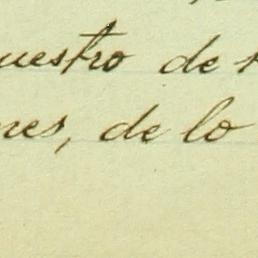 uestro de
nes, de lo